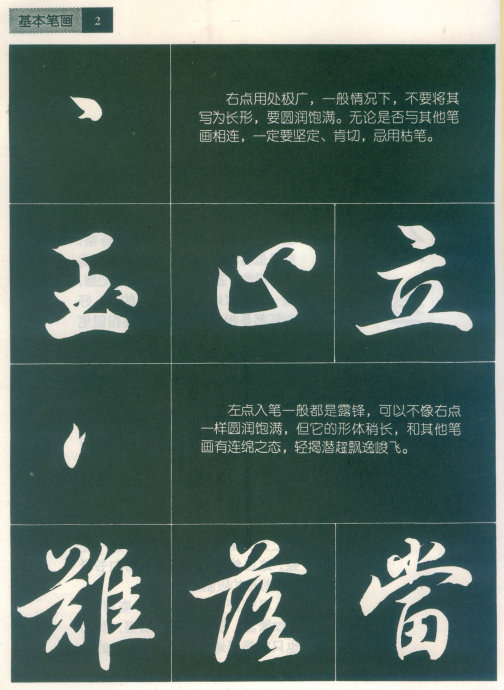 基本笔画 2
右点用处极广，一般情况下，不要将其
写为长形，要圆润饱满。无论是否与其他笔
画相连，一定要坚定、肯切，忌用枯笔。
玉 心 立
左点入笔一般都是露锋，可以不像右点
一样圆润饱满，但它的形体稍长，和其他笔
画有连绵之态，轻揭潜趯飘逸峻飞。
難 落 當